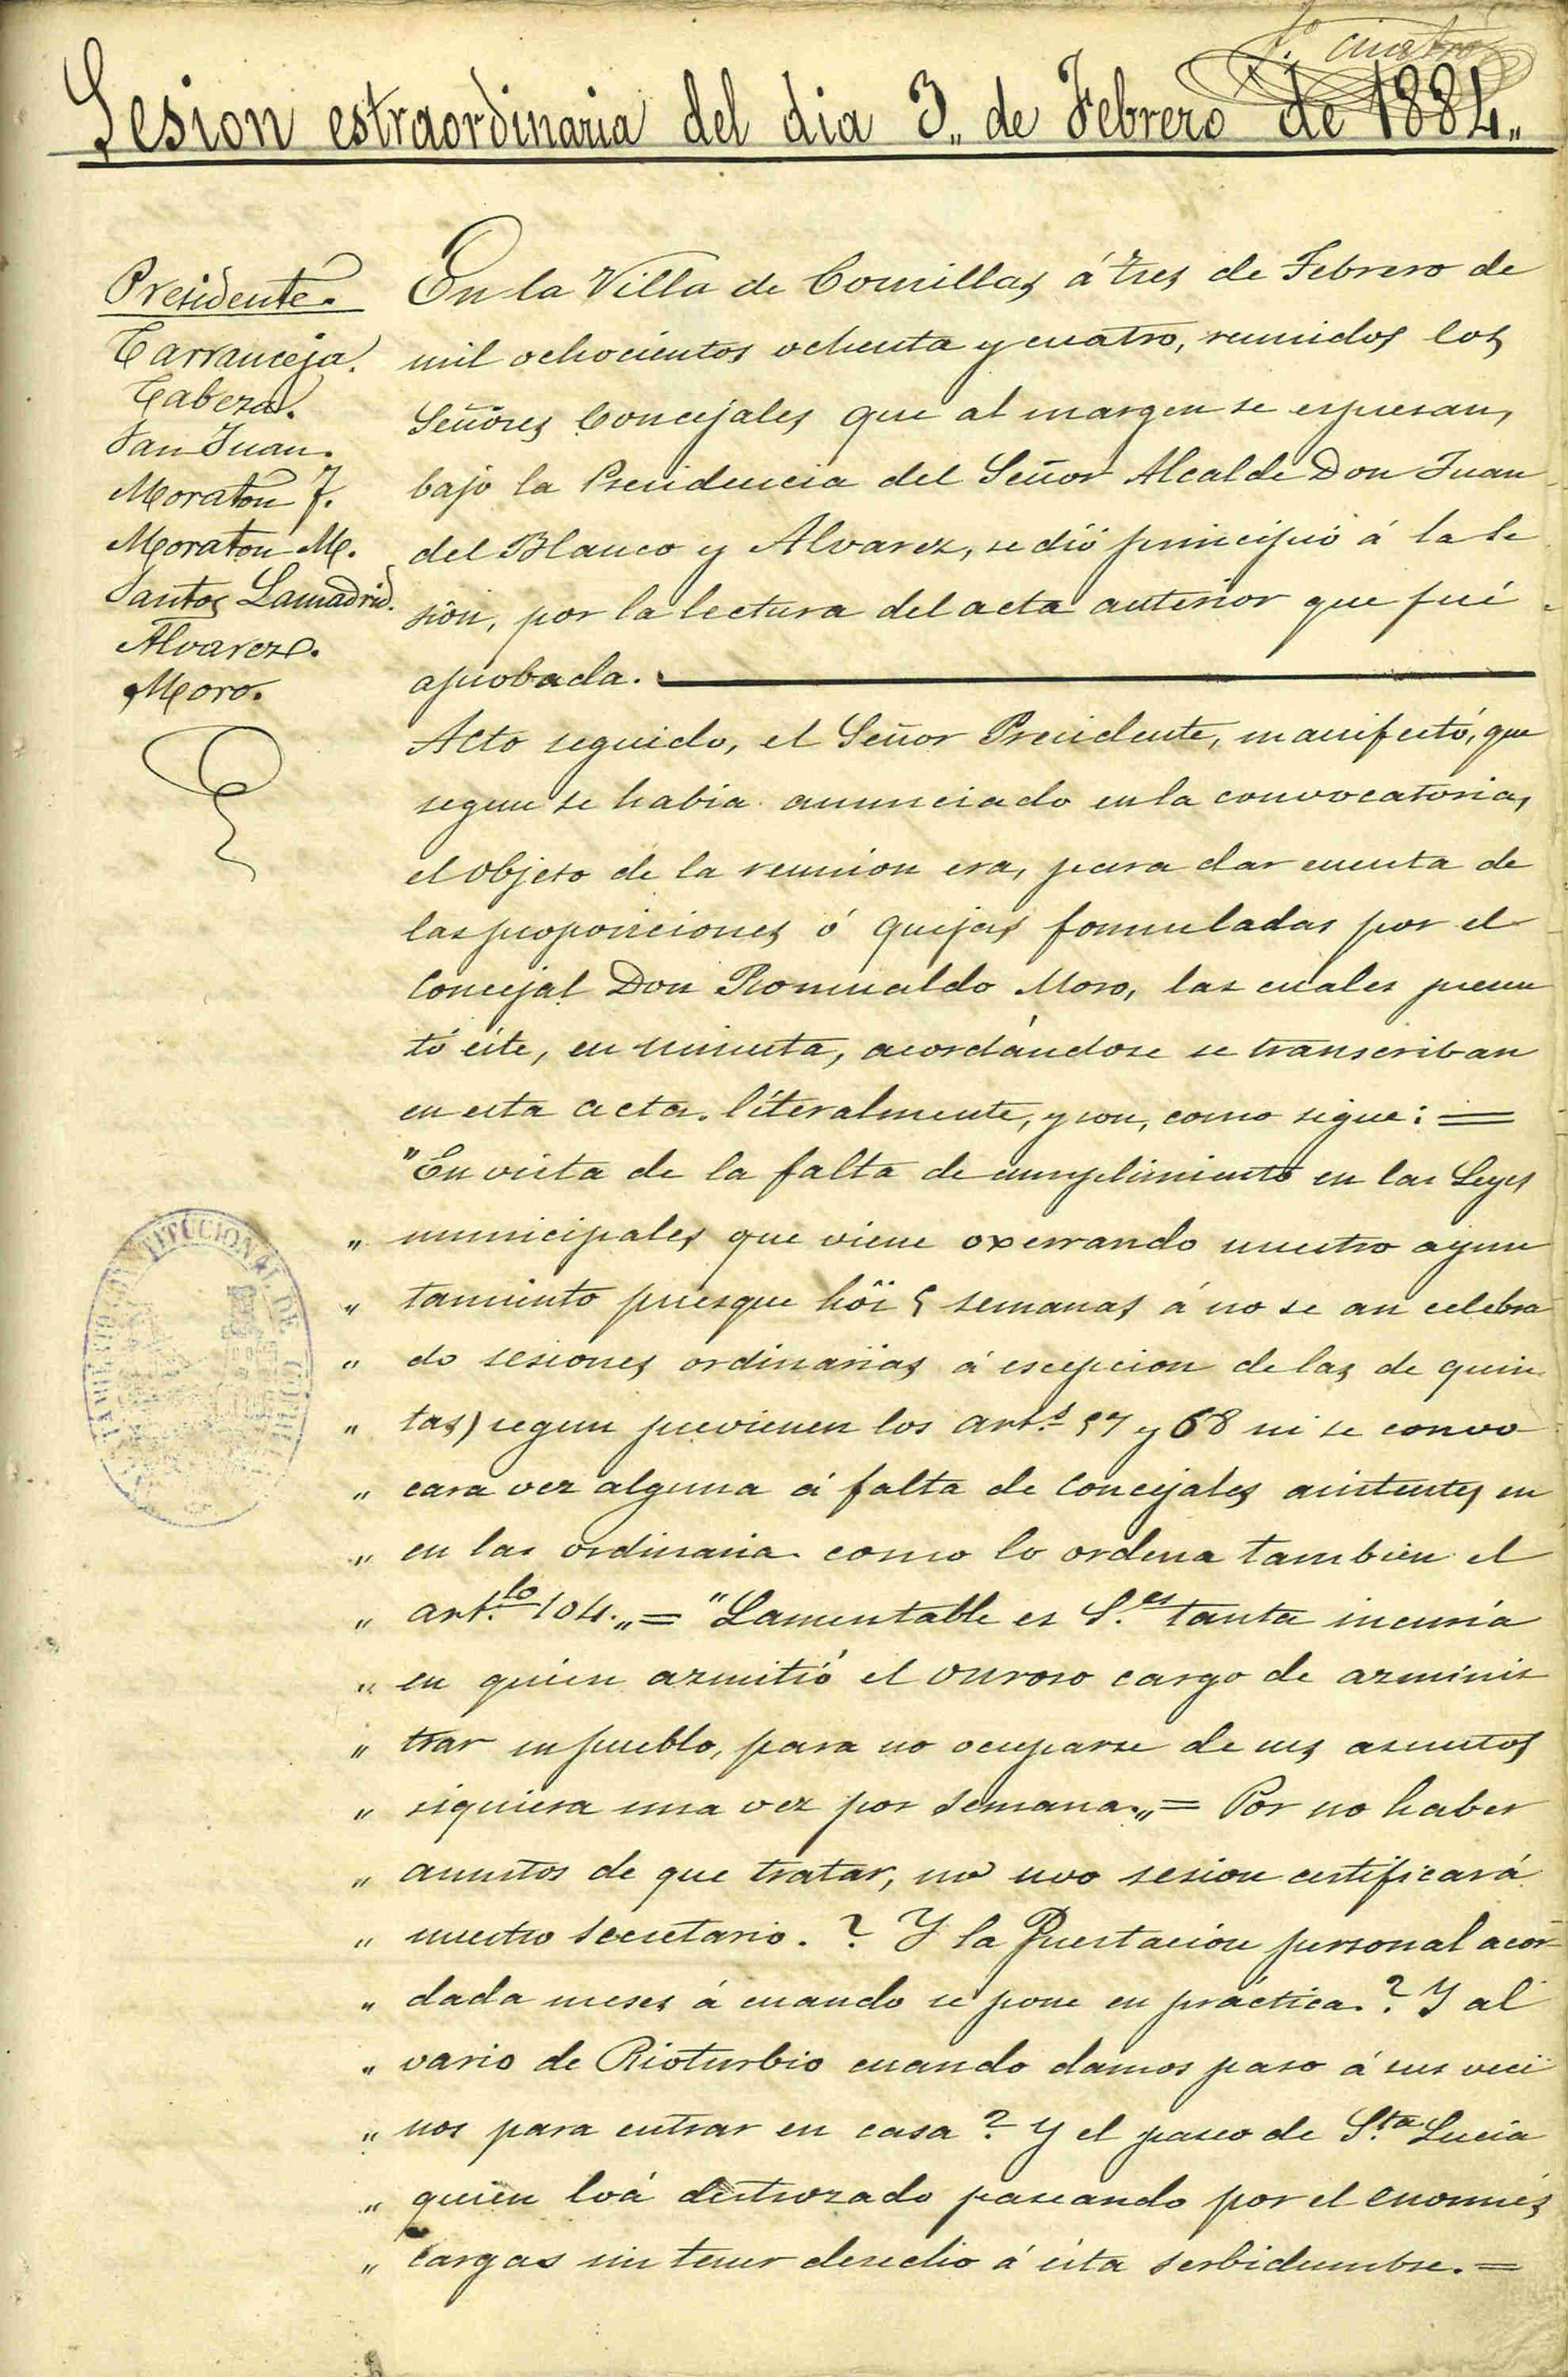 fº cuatro
Sesion estraordinaria del dia 3,, de Febrero de 1884,,
Presidente.
Tarranceja.
Cabeza.
San Juan.
Moraton J.
Moraton M.
Santos Lamadrid.
Alvarez.
Moro.
En la Villa de Comillas á tres de Febrero de
mil ochocientos ochenta y cuatro, reunidos los
Señores Concejales que al margen se espresan,
bajo la Presidencia del Señor Alcalde Don Juan
del Blanco y Alvarez, se dió principio á la se
sion, por la lectura del acta anterior que fué
aprobada.
Acto seguido, el Señor Presidente, manifestó, que
segun se habia anunciado en la convocatoria,
el objeto de la reunion era, para dar cuenta de
las proposiciones ó quejas formuladas por el
Concejal Don Romualdo Moro, las cuales presen
tó éste, en minuta, acordándose se transcriban
en esta acta literalmente, y son, como sigue: =
"En vista de la falta de cumplimiento en las Leyes
" municipales que viene oxerrando nuestro ayun
" tamiento puesque hói 5 semanas á no se an celebra
" do sesiones ordinarias á escepcion de las de quin
" tas) segun previenen los art.s 57 y 68 ni se convo
" cara vez alguna á falta de Concejales asistentes en
" en las ordinaria como lo ordena tambien el
" art.lo 104.,,= "Lamentable es S.es tanta incuria
" en quien azmitió el onroso cargo de azminis
" trar su pueblo, para no ocuparse de sus asuntos
" siquiera una vez por semana.,,= Por no haber
" asuntos de que tratar, no uvo sesion certificará
" nuestro secretario. ? Y la Prestacion personal acor
" dada meses á cuando se pone en práctica. ? Y al
" vario de Rioturbio cuando damos paso á sus veci
" nos para entrar en casa ? Y el paseo de S.ta Lucia
" quien loá destrozado paseando por el enormes
" cargas sin tener derecho á esta serbidumbre. =